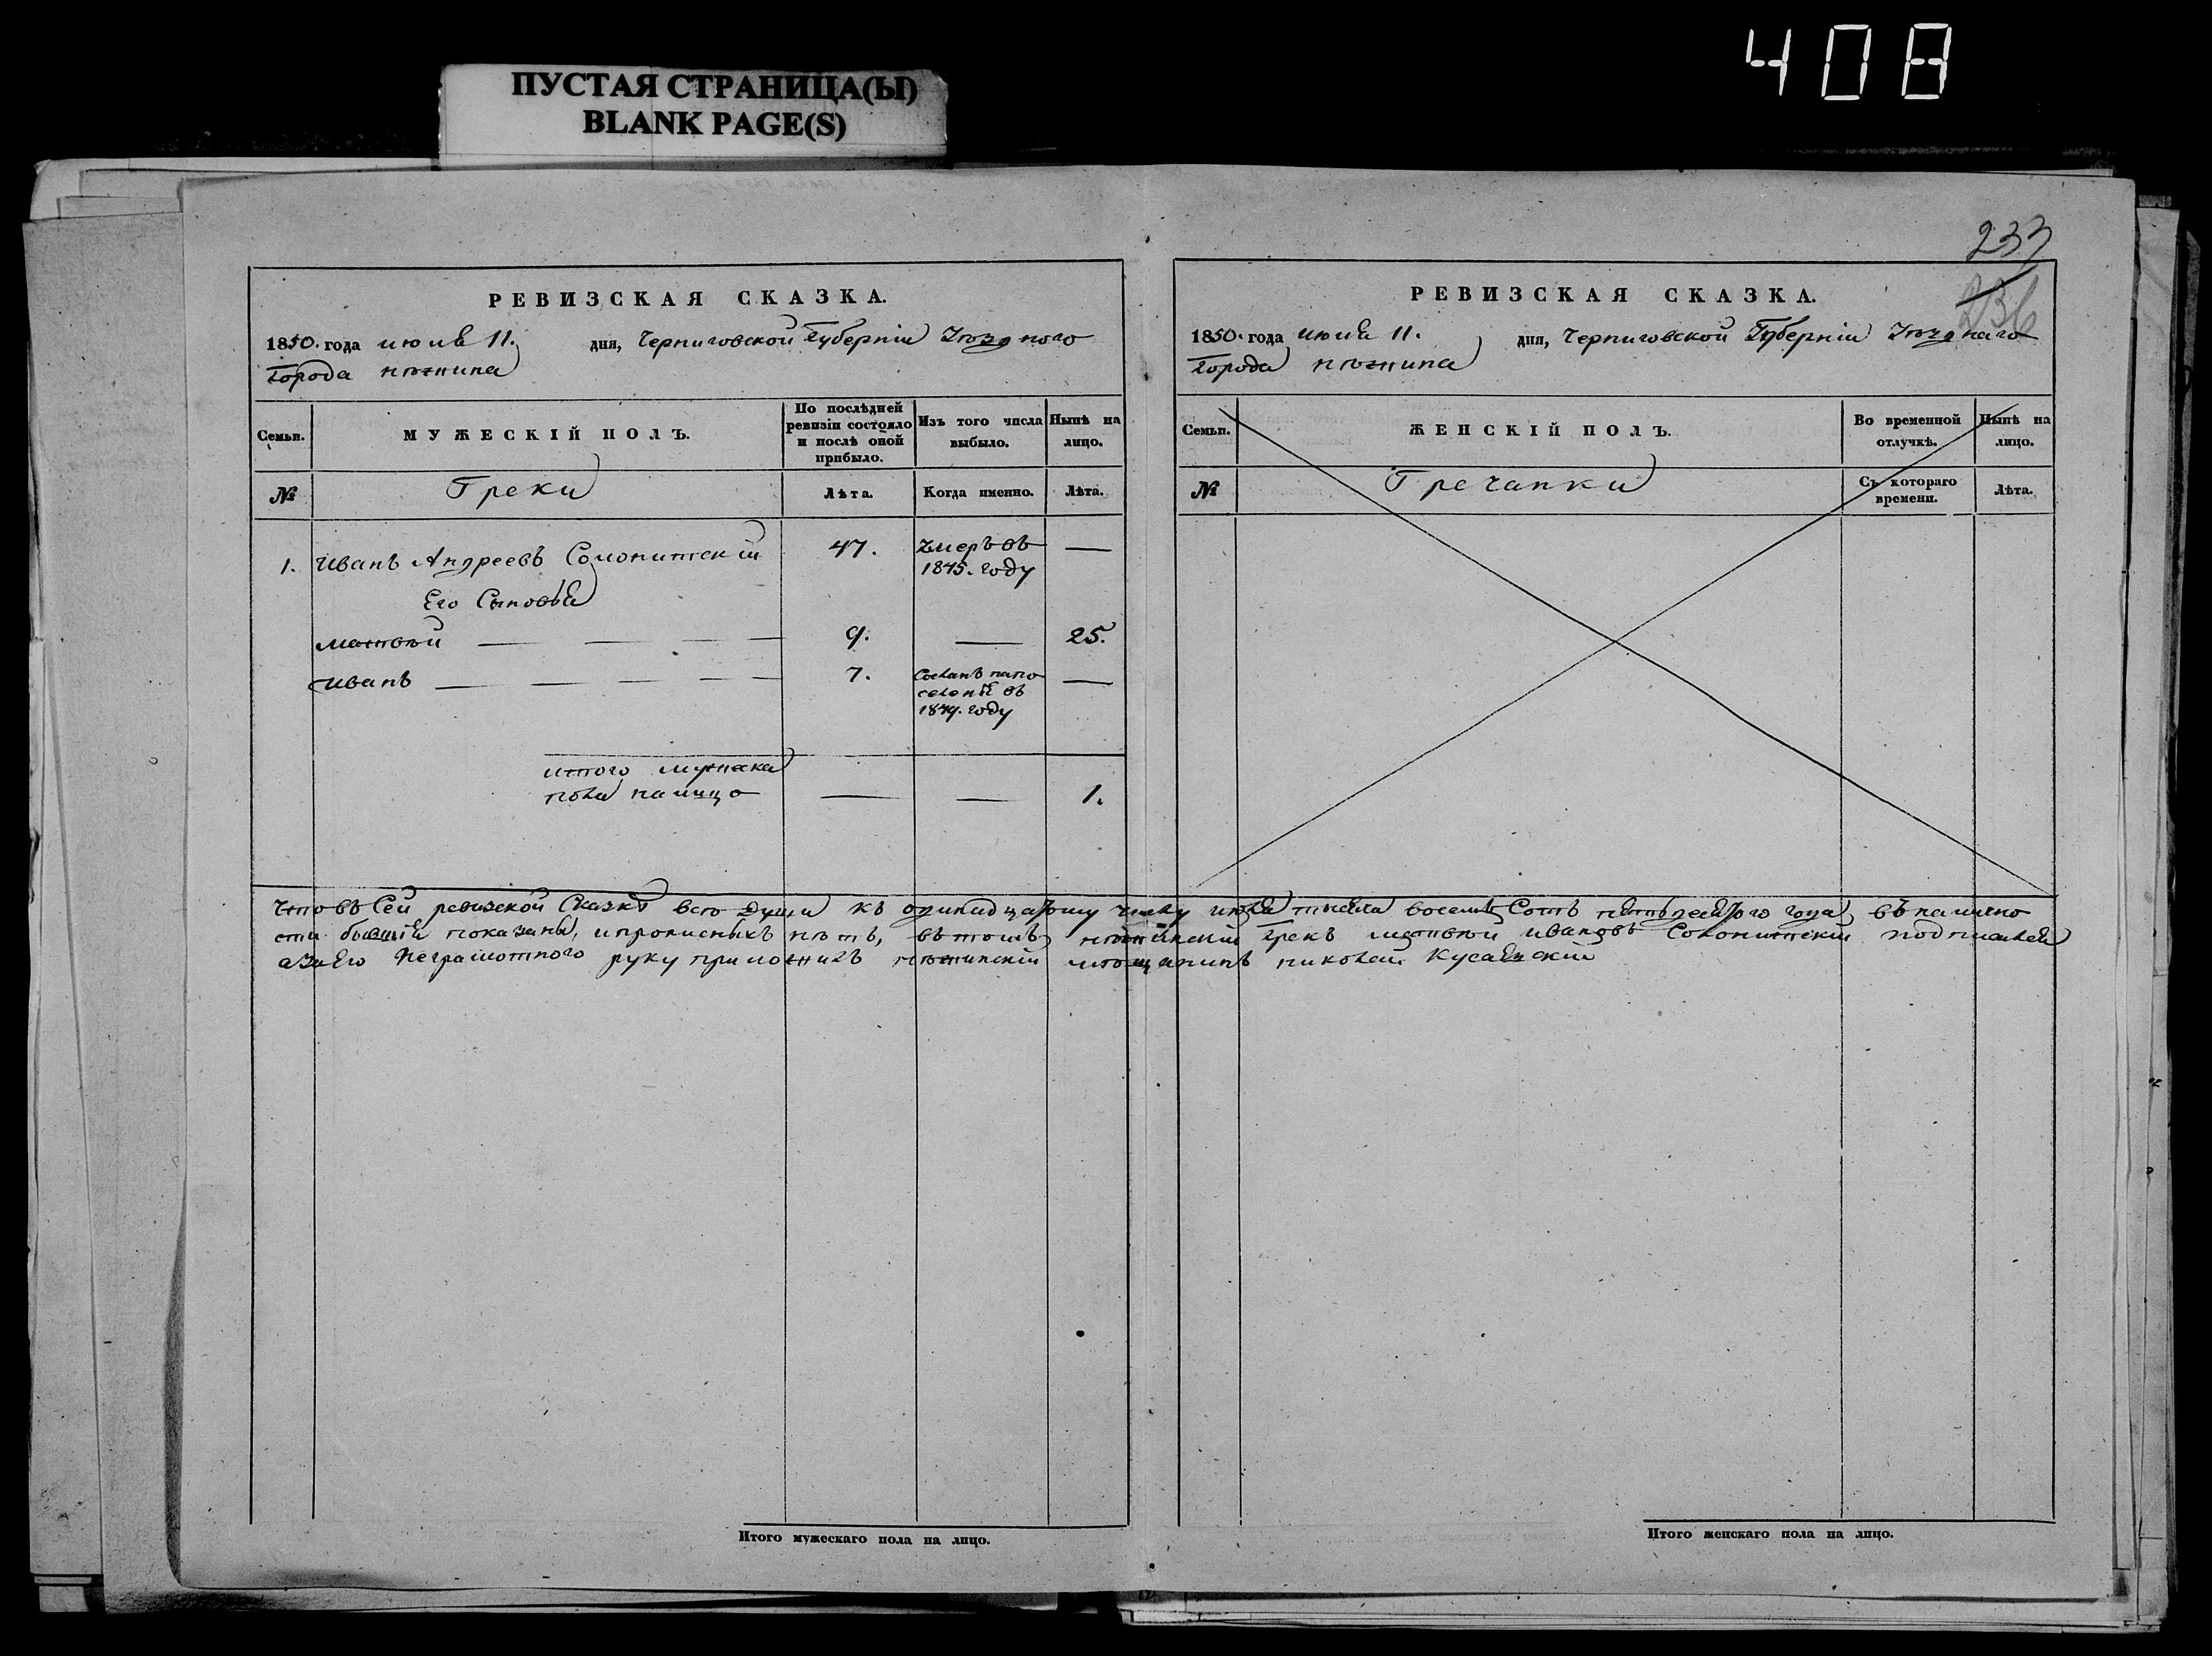 408
ПУСТАЯ СТРАНИЦА(Ы)
BLANK PAGE(S)
233
РЕВИЗСКАЯ СКАЗКА.
1850. года июля 11. дня, Черниговской Губерніи Уѣзднаго
Города нѣжина
Семьи.
МУЖЕСКІЙ ПОЛЪ.
По послѣдней ревизіи состояло и послѣ оной прибыло.
Изъ того числа выбыло.
Нынѣ на лицо.
№
Греки
Лѣта.
Когда именно.
Лѣта.
1. Иванъ Андреевъ Солонитскій 47. Умеръ въ —
1845. году
Его Сыновья
матвѣй — — — — 9. — 25.
Иванъ — — — — 7. Сосланъ напо —
селеніе въ
1849. году
итого мужска
поланалицо — — 1.
РЕВИЗСКАЯ СКАЗКА.
1850. года июля 11. дня, Черниговской Губерніи Уѣзднаго
Города нѣжина
Семьи.
ЖЕНСКІЙ ПОЛЪ.
Во временной отлучкѣ.
Нынѣ на лицо.
№
Гречанки
Съ котораго времени.
Лѣта.
Что въ Сей ревизской Сказкѣ всѣ души къ одинадцатому числу июля тысяча восемь Сотъ пятьдесятого года, въ налично
сти бывшія показаны, ипрописныхъ нѣтъ, въ томъ нѣжинскій Грекъ матвѣй ивановъ Солонитскій подписался
азаЕго неграмотного руку приложилъ нѣжинскій мѣщанинъ николай
Итого мужескаго пола на лицо.
Итого женскаго пола на лицо.